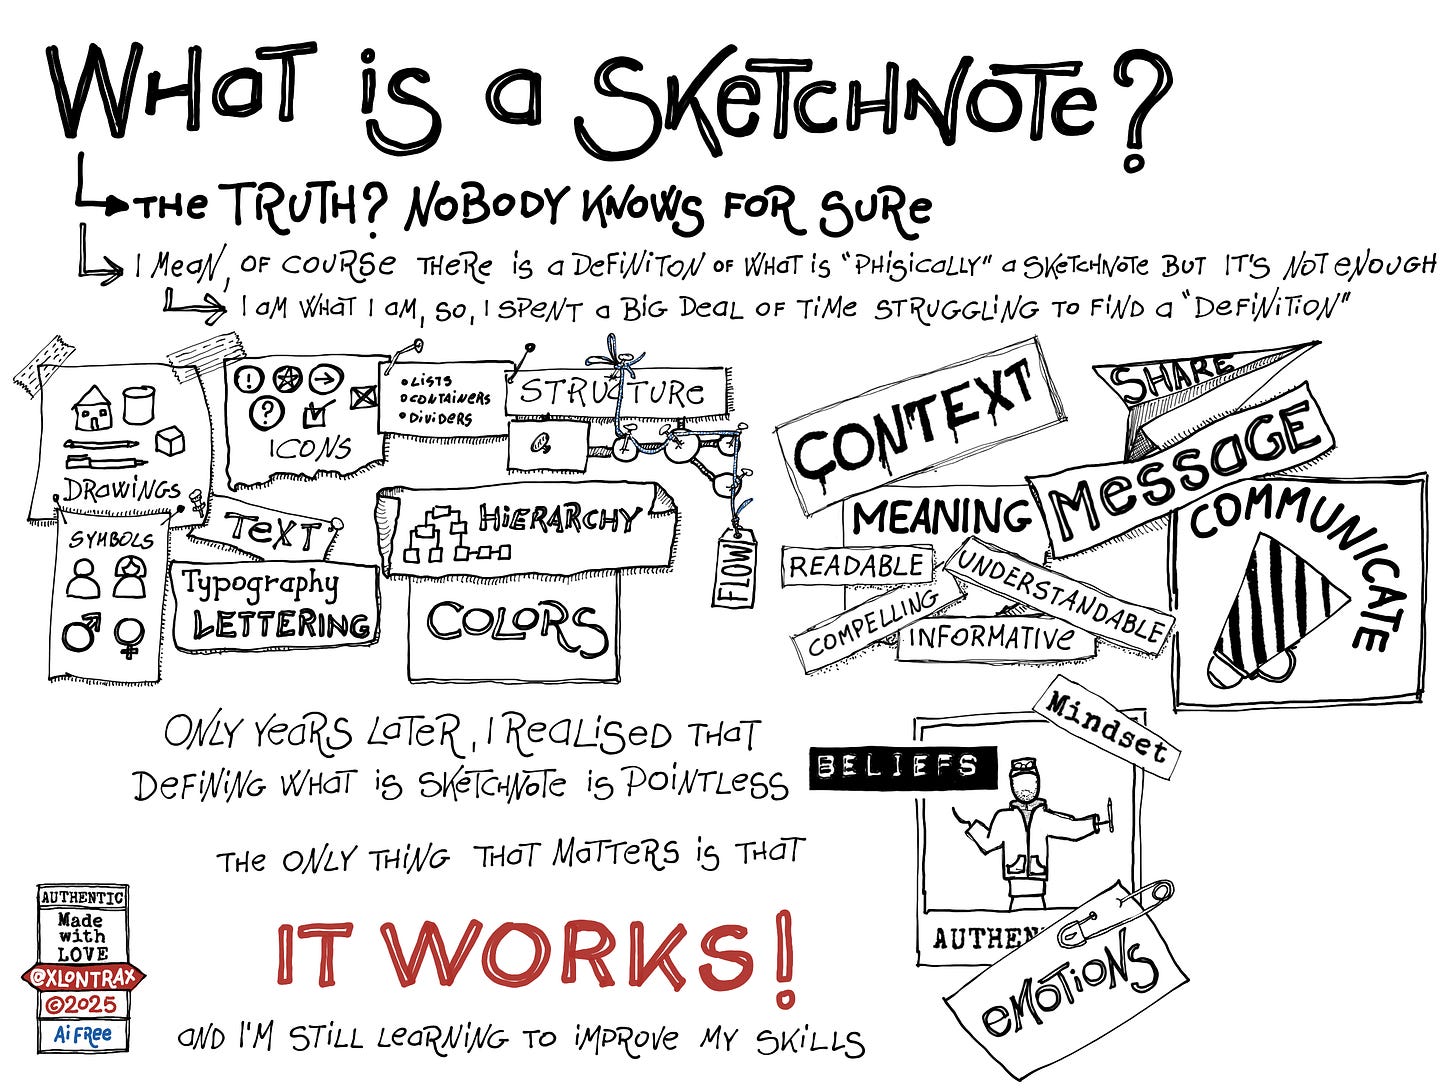 WHaT is a SKeTCHNOTe?
THe TRUTH? NOBODY KNOWS FOR SURe
I MeaN, OF COURSe THERe is a DeFiNiTON OF WHaT iS "PHiSiCALLY" a SKeTCHNOTe BUT IT'S NOT eNOUGH
I aM WHaT I aM, SO, I SPeNT a BiG DeaL OF TiMe STRUGGLiNG TO FiND a "DeFiNiTiON"
DRaWiNGS
ICONS
• LiSTS
• CONTAiNeRS
• DiViDeRS
STRUCTURe
SYMBOLS
TeXT
Typography
LETTERING
HiERARCHY
COLORS
FLOW
CONTEXT
SHARE
MessaGE
MEANING
COMMUNICATE
READABLE
UNDERSTANDABLE
COMPELLING
INFORMATiVe
ONLY YeaRS LaTeR, I ReaLiSeD THaT
DeFiNiNG WHaT iS SKeTCHNOTe iS POiNTLESS
THe ONLY THiNG THaT MaTTeRS iS THaT
IT WORKS!
aND I'M STiLL LeaRNiNG TO iMPROVe MY SKiLLS
Mindset
BELIEFS
AUTHEN
eMOTiONS
AUTHENTIC
Made
with
LOVE
@XLONTRAX
©2025
Ai FRee